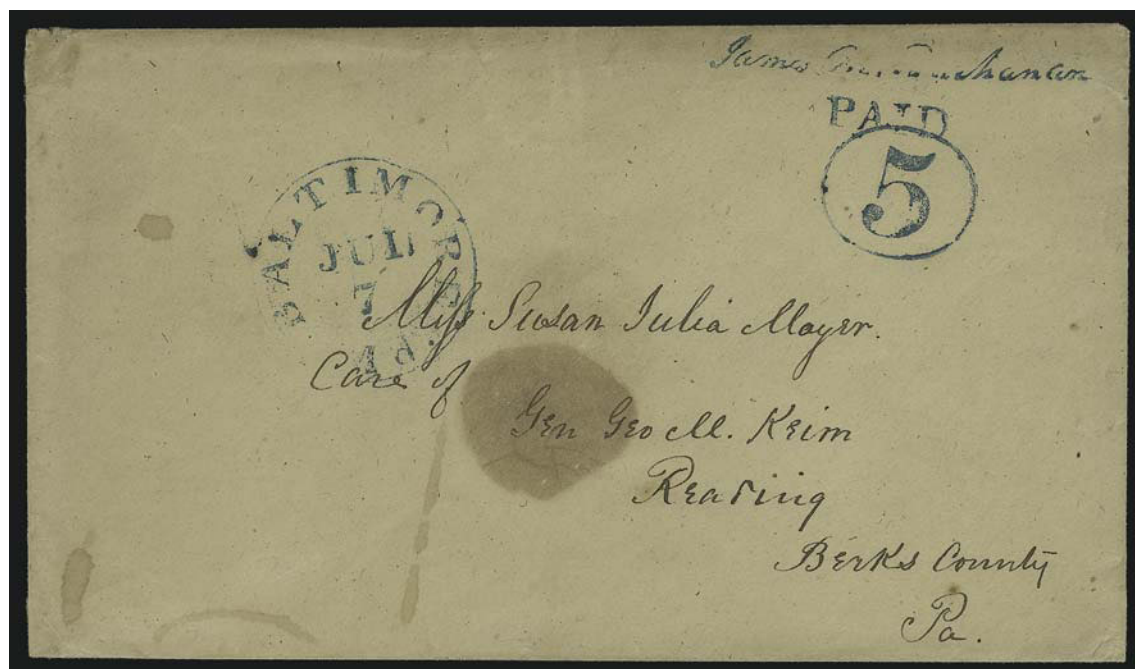 James M. Buchanan
PAID
5
BALTIMORE
JUL
7
Miss Susan Julia Mayer.
Care of
Gen Geo M. Keim
Reading
Berks County
Pa.